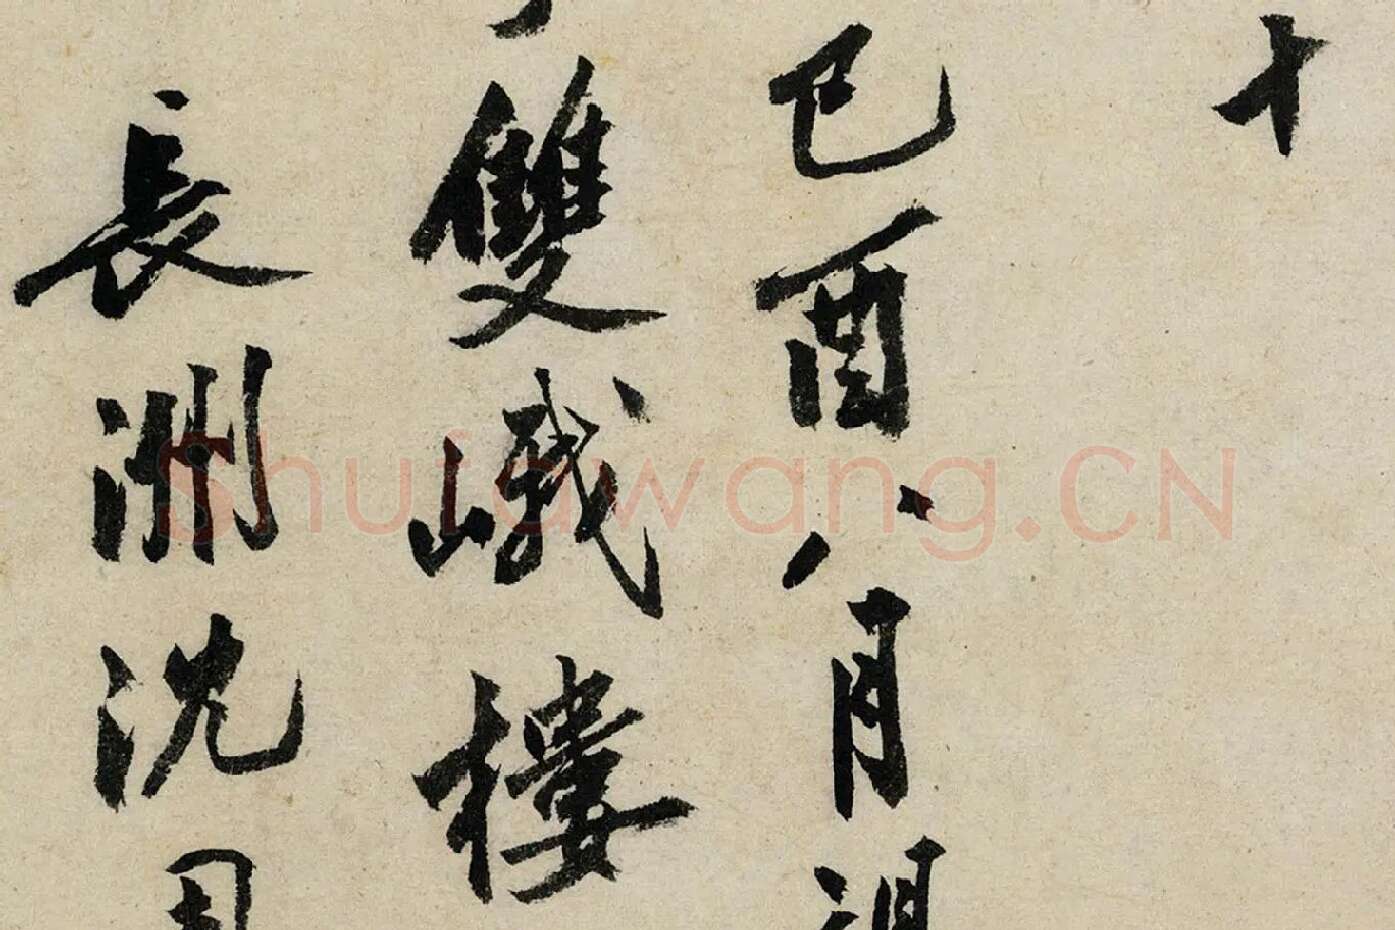 十
己酉八月
雙峨樓
長洲沈周
Shufawang.CN